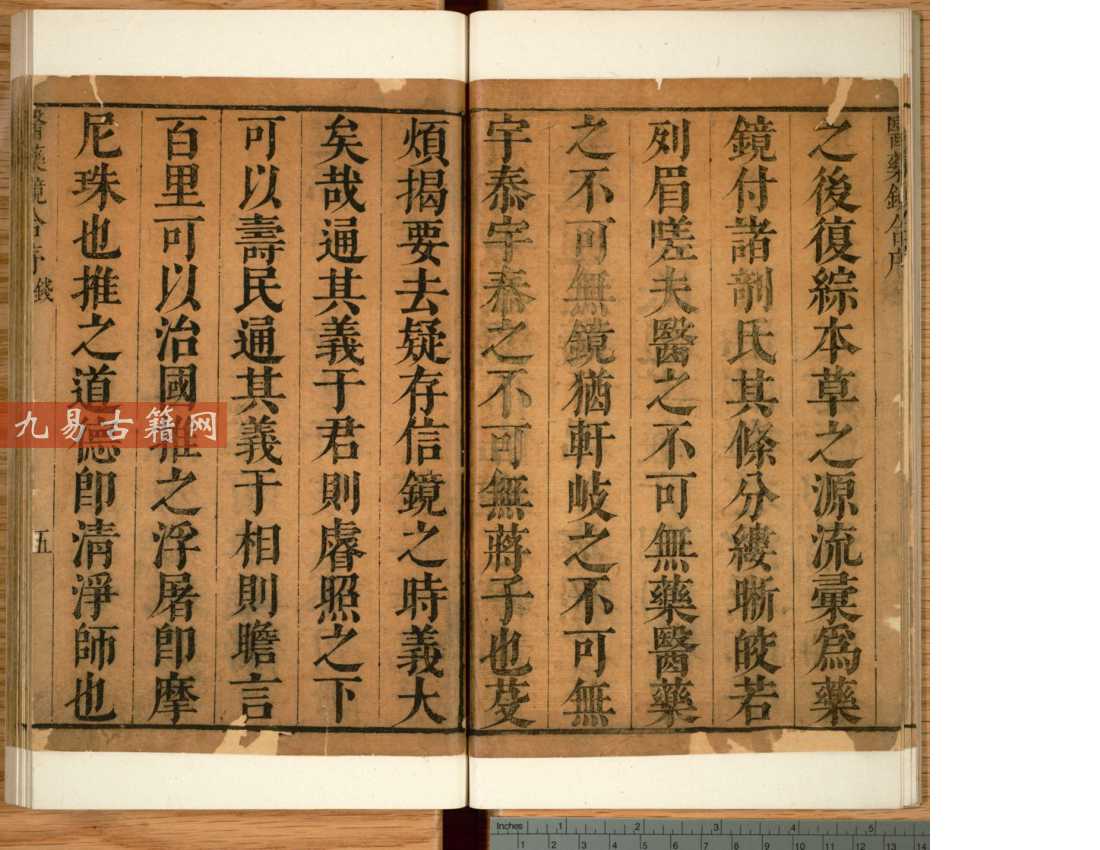 醫藥鏡合序
之後復綜本草之源流彙爲藥
鏡付諸剞氏其條分縷晰皎若
列眉嗟夫醫之不可無藥醫藥
之不可無鏡猶軒岐之不可無
宇泰宇泰之不可無蔣子也芟
煩揭要去疑存信鏡之時義大
矣哉通其義于君則睿照之下
可以壽民通其義于相則瞻言
百里可以治國推之浮屠卽摩
尼珠也推之道德卽清淨師也
醫藥鏡合序 錢 五
九易古籍网
Inches 1 2 3 4 5
1 2 3 4 5 6 7 8 9 10 11 12 13 14